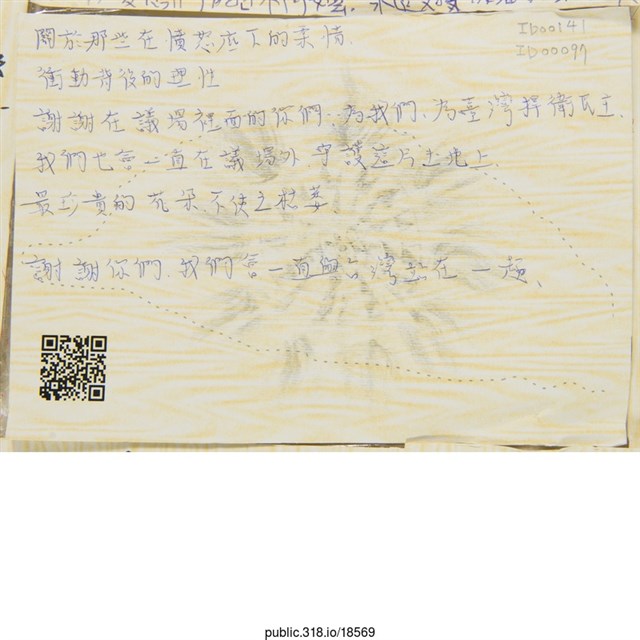 關於那些在憤怒底下的柔情.
ID00141
ID00097
衝動背後的理性
謝謝在議場裡面的你們.為我們.為臺灣捍衛民主.
我們也會一直在議場外守護這片土地上.
最珍貴的花朵不使之枯萎.
謝謝你們.我們會一直與台灣站在一起、
public.318.io/18569